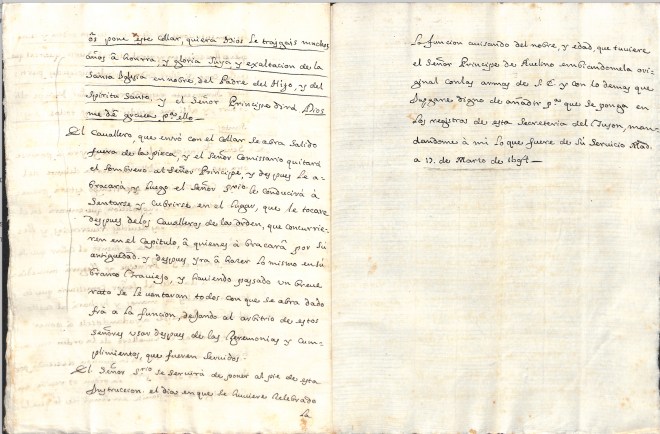 os̃ pone este Collar, quiera Dios le traigais muchos
años â honrra, y gloria suya y exaltacion de la
Santa Iglesia en nōbre del Padre del Hijo, y del
Spiritu Santo, y el Señor Principe dirâ Dios
me dê gracia pᵃ ello —
El Cauallero, que entró con el Collar se abra salido
fuera de la pieca, y el señor Comissario quitará
el sombrero al Señor Principe, y despues le a-
bracará, y luego el Señor Sʳⁱᵒ le conducirá â
Sentarse y cubrirse en el lugar, que le tocare
despues de los Caualleros de la orden, que concurrie-
ren en el Capitulo, â quienes â bracarâ por su
antiguedad. y despues yrâ â hazer lo mismo en su
banco Trauieso, y hauiendo passado un breue
rato se leuantaran todos con que se abra dado
fin a la funcion, dejando al arbitrio de estos
señores usar despues de las Ceremonias y Cum-
plimientos, que fueren seruidos.
El Señor Sʳⁱᵒ se seruirá de poner al pie de esta
Instruccion el dia en que se huuiere Zelebrado
la
La funcion auisando del nōbre, y edad, que tuuiere
el Señor Principe de Auelino embiandomela ori-
ginal con las armas de S. E. y con lo demas que
Juzgare digno de añadir pᵃ que se ponga en
los registros de esta Secretaria del Tuson, man-
dandome â mi lo que fuere de su seruicio Mad.
a 17. de Marzo de